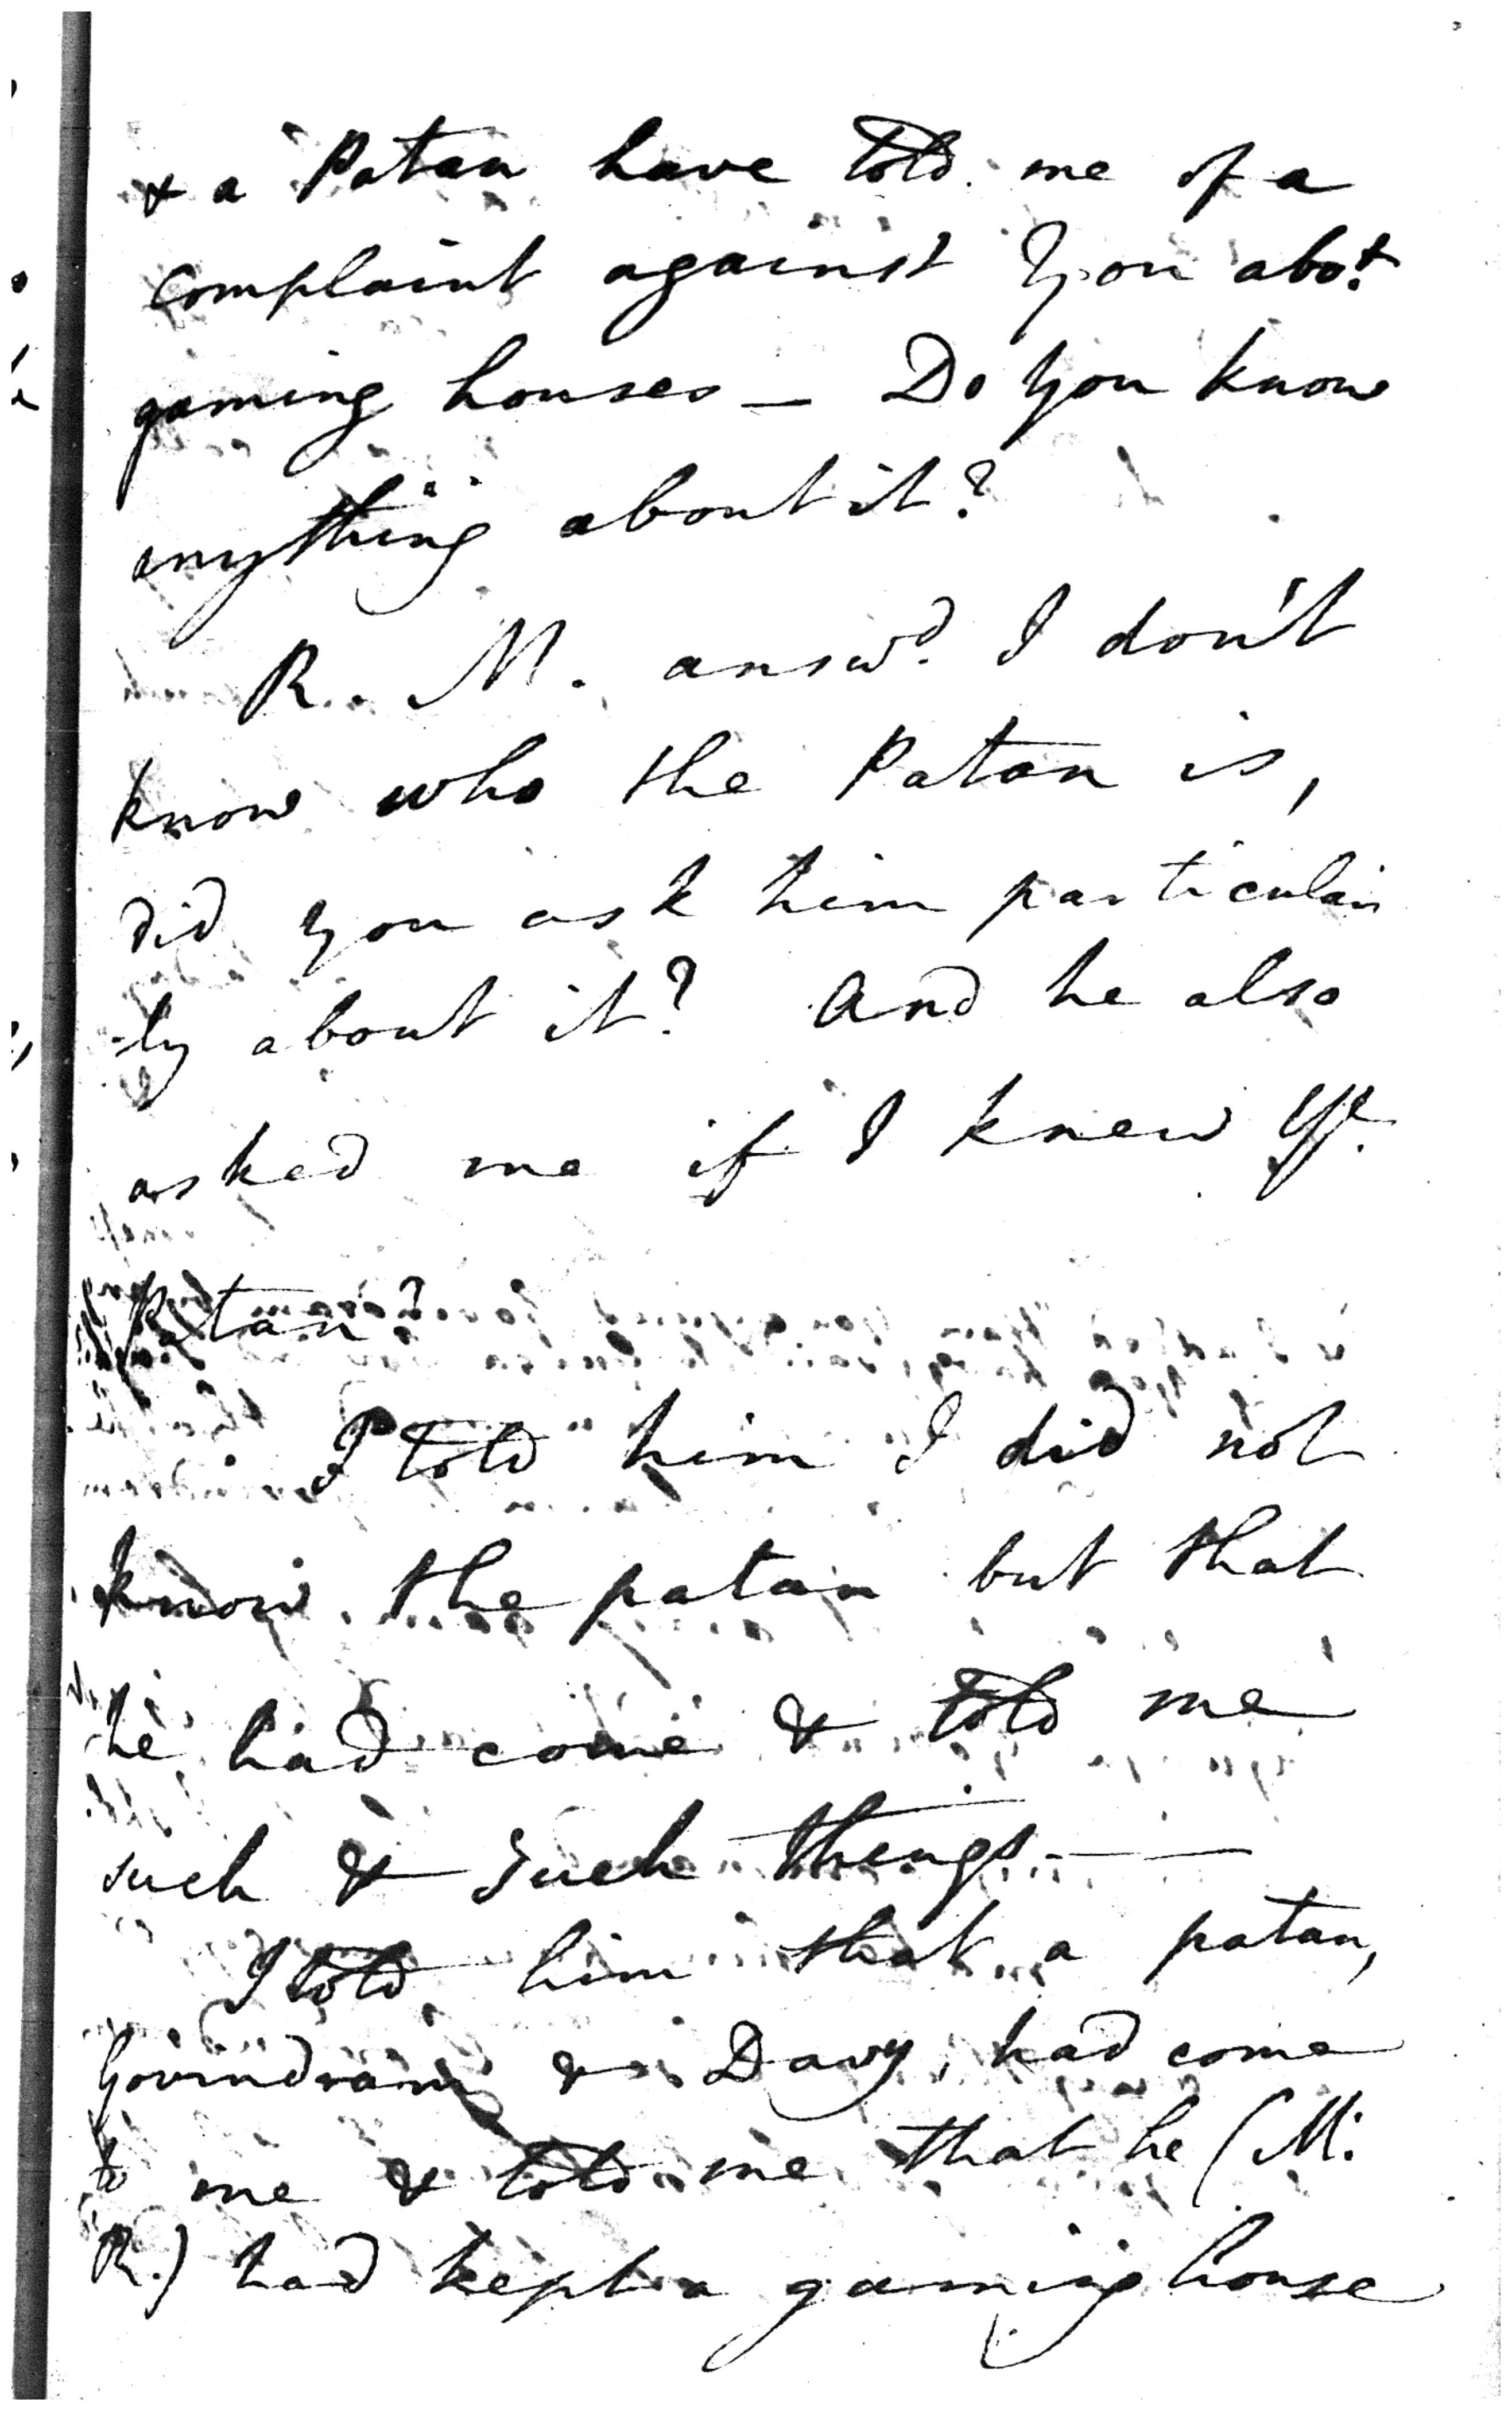 & a Patan have told me of a
complaint against you abot
gaming houses — Do you know
anything about it?
R. M. answd. I don't
know who the Patan is,
did you ask him particular
-ly about it? And he also
asked me if I knew ye
Patan?
I told him I did not
know the patan but that
he had come & told me
such & such things —
I told him that a patan,
Govindram & Davy, had come
to me & told me that he (M.
R.) had kept a gaming house